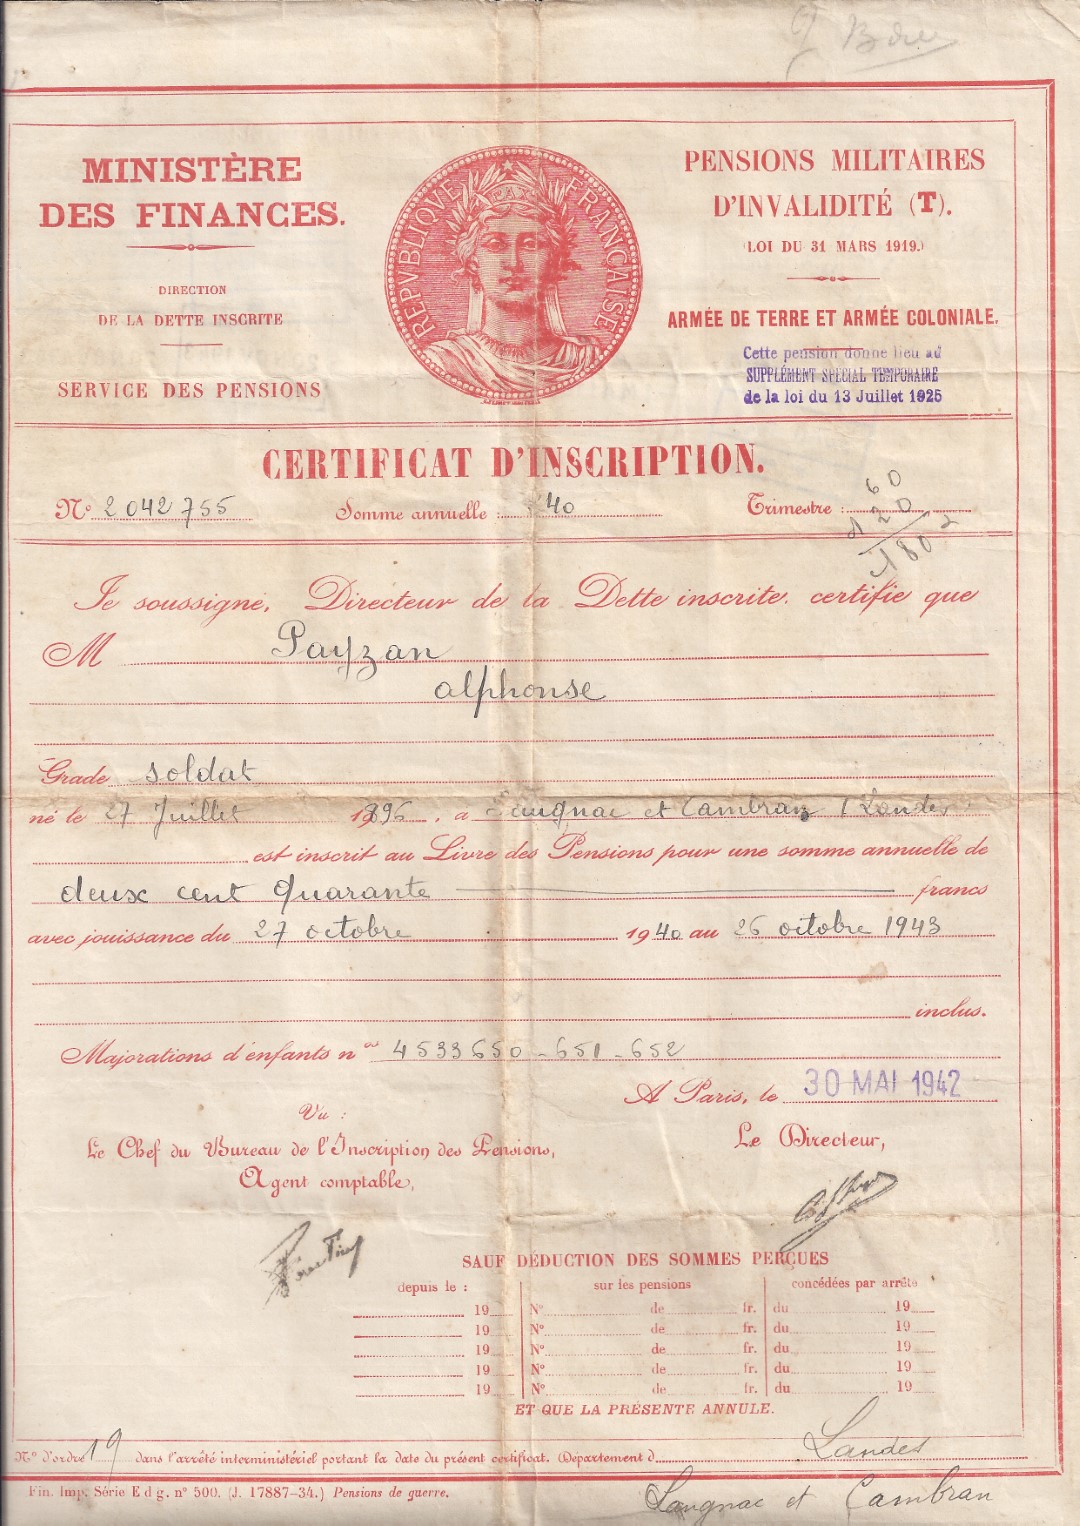 MINISTÈRE
DES FINANCES.
DIRECTION
DE LA DETTE INSCRITE
SERVICE DES PENSIONS
REPVBLIQVE FRANÇAISE
PAX
PENSIONS MILITAIRES
D'INVALIDITÉ (T).
(LOI DU 31 MARS 1919.)
ARMÉE DE TERRE ET ARMÉE COLONIALE.
Cette pension donne lieu au
SUPPLÉMENT SPÉCIAL TEMPORAIRE
de la loi du 13 Juillet 1925
CERTIFICAT D'INSCRIPTION.
Nº 2042755 Somme annuelle : 240 Trimestre : 60
120
180
Je soussigné, Directeur de la Dette inscrite, certifie que
M Payzan
alphonse
Grade soldat
né le 27 Juillet 1896, à Saugnac et Cambran (Landes)
est inscrit au Livre des Pensions pour une somme annuelle de
deux cent quarante francs
avec jouissance du 27 octobre 1940 au 26 octobre 1943
inclus.
Majorations d'enfants nos 4533650 - 651 - 652
A Paris, le 30 MAI 1942
Vu :
Le Chef du Bureau de l'Inscription des Pensions,
Agent comptable,
Le Directeur,
SAUF DÉDUCTION DES SOMMES PERÇUES
depuis le : sur les pensions concédées par arrêté
19 Nº de fr. du 19
19 Nº de fr. du 19
19 Nº de fr. du 19
19 Nº de fr. du 19
19 Nº de fr. du 19
ET QUE LA PRÉSENTE ANNULE.
Nº d'ordre 19 dans l'arrêté interministériel portant la date du présent certificat. Département d Landes
Fin. Imp. Série E d g. nº 500. (J. 17887-34.) Pensions de guerre.
Saugnac et Cambran